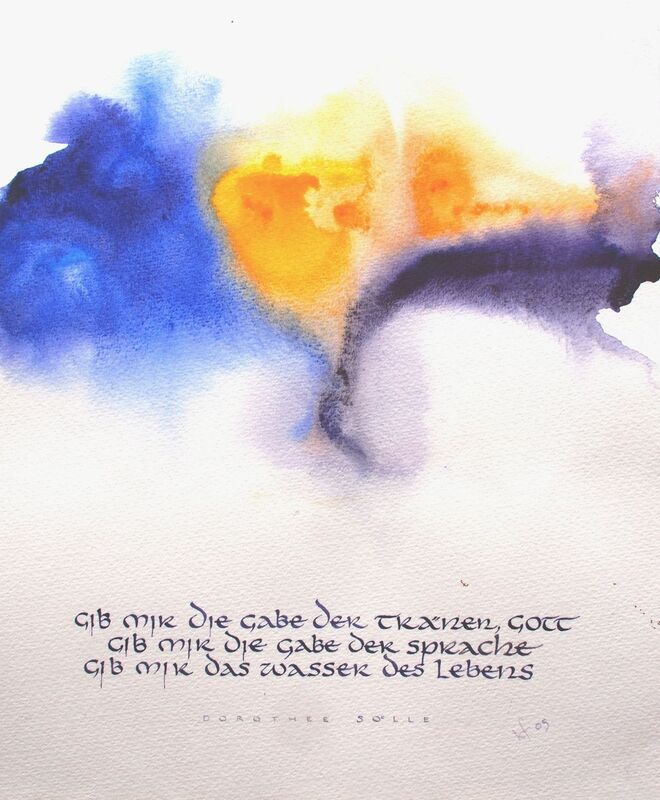 gib mir die gabe der tränen, gott
gib mir die gabe der sprache
gib mir das wasser des lebens
DOROTHEE SÖLLE